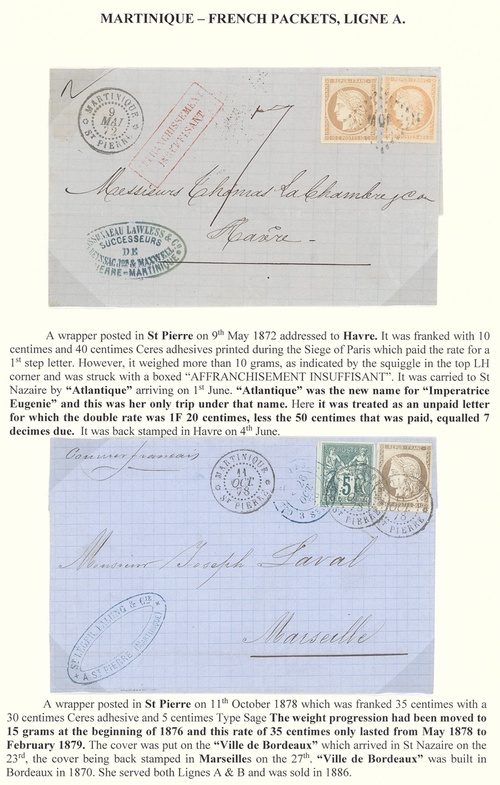 MARTINIQUE – FRENCH PACKETS, LIGNE A.
MARTINIQUE
9
MAI
72
ST PIERRE
AFFRANCHISSEMENT
INSUFFISANT
7
Messieurs Thomas LaChambre & Co
Havre
LAWLESS & Co
SUCCESSEURS
DE
& MAXWELL
PIERRE-MARTINIQUE
A wrapper posted in St Pierre on 9th May 1872 addressed to Havre. It was franked with 10
centimes and 40 centimes Ceres adhesives printed during the Siege of Paris which paid the rate for a
1st step letter. However, it weighed more than 10 grams, as indicated by the squiggle in the top LH
corner and was struck with a boxed “AFFRANCHISEMENT INSUFFISANT”. It was carried to St
Nazaire by “Atlantique” arriving on 1st June. “Atlantique” was the new name for “Imperatrice
Eugenie” and this was her only trip under that name. Here it was treated as an unpaid letter
for which the double rate was 1F 20 centimes, less the 50 centimes that was paid, equalled 7
decimes due. It was back stamped in Havre on 4th June.
Courrier francais
MARTINIQUE
11
OCT
78
ST PIERRE
5
Monsieur Joseph Laval
Marseille
& CIE
A ST PIERRE (MARTINIQUE)
A wrapper posted in St Pierre on 11th October 1878 which was franked 35 centimes with a
30 centimes Ceres adhesive and 5 centimes Type Sage The weight progression had been moved to
15 grams at the beginning of 1876 and this rate of 35 centimes only lasted from May 1878 to
February 1879. The cover was put on the “Ville de Bordeaux” which arrived in St Nazaire on the
23rd, the cover being back stamped in Marseilles on the 27th. “Ville de Bordeaux” was built in
Bordeaux in 1870. She served both Lignes A & B and was sold in 1886.